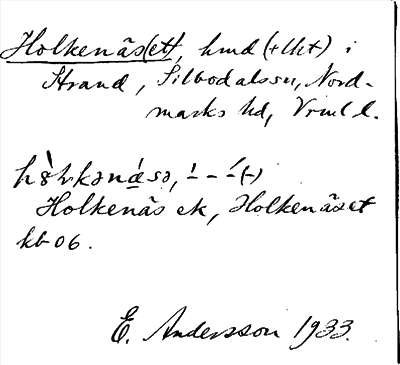 Holkenäs(et), hmd (+lht) i
Strand, Silbodalssn, Nord-
marks hd, Vrml l.
hɤ̀ɫkəná̱sə, –́ – –́(–)
Holkenäs ek, Holkenäset
kb 06.
E. Andersson 1933.